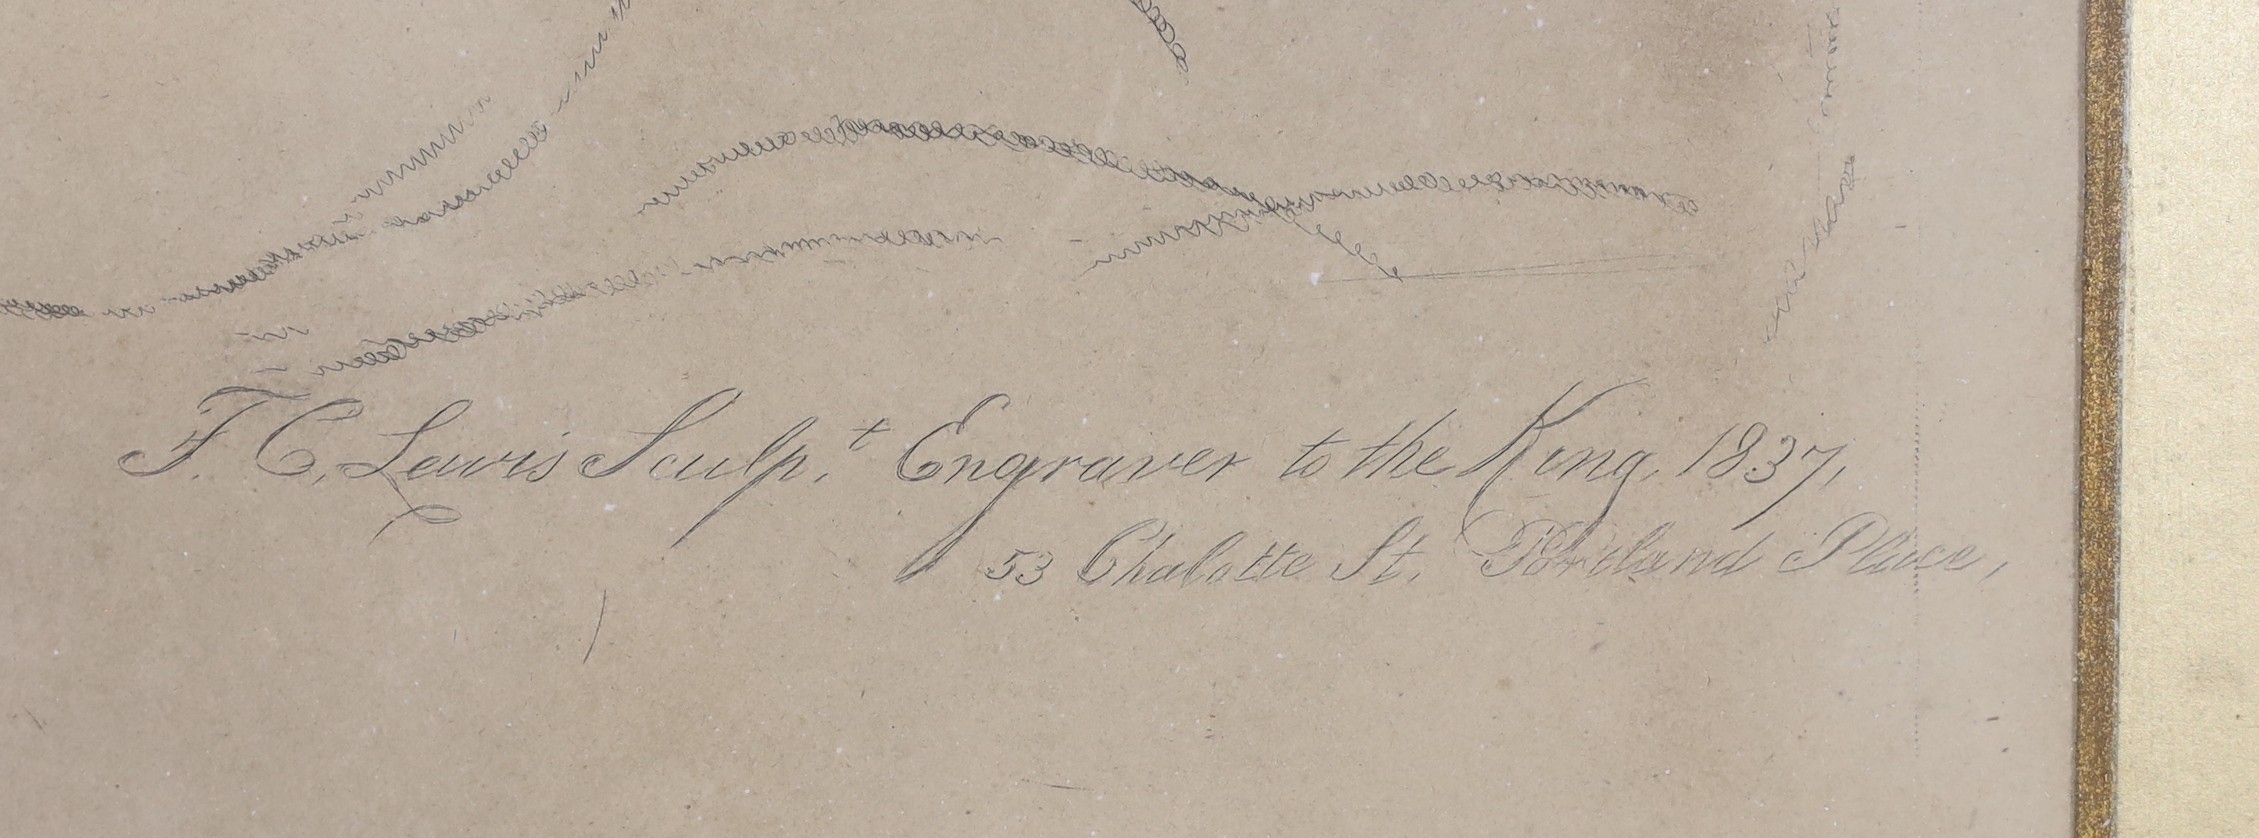 F. C. Lewis Sculp.t Engraver to the King, 1837,
53 Chalotte St. Portland Place,